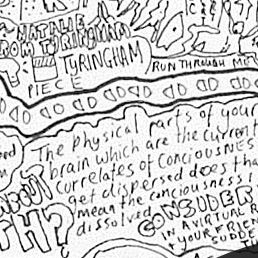 NATALIE
FROM TURINGHAM
TURINGHAM
PIECE
RUN THROUGH ME
The physical parts of your
brain which are the current
correlates of conciousness
get dispersed does tha
mean the conciousness i
dissolved
ABOUT
TH?
CONSIDER
IN A VIRTUAL R
YOUR FRIEN
SUDDE